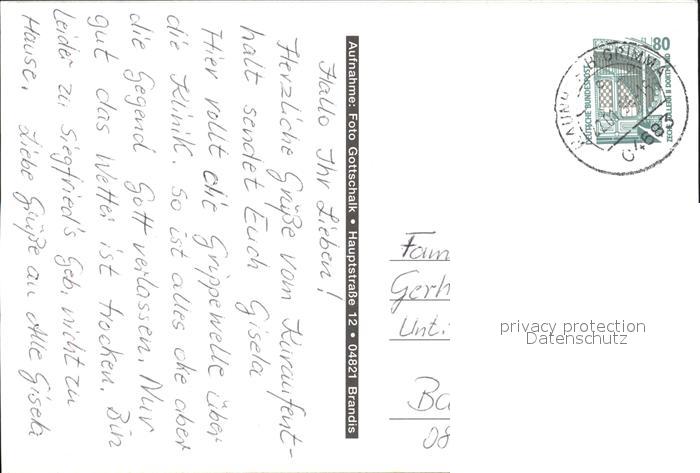 Hallo Ihr Lieben!
Herzliche Grüße vom Kuraufent-
halt sendet Euch Gisela
Hier rollt die Grippewelle über
die Klinik. So ist alles oke aber
die Gegend Gott verlassen. Nur
gut das Wetter ist trocken. Bin
leider zu Siegfried's Geb. nicht zu
Hause. Liebe Grüße an Alle Gisela
Aufnahme: Foto Gottschalk • Hauptstraße 12 • 04821 Brandis
80
DEUTSCHE BUNDESPOST
ZECHE ZOLLERN II DORTMUND
GRIMMA
Fam
Gerh
Unt.
Ba
08
privacy protection
Datenschutz